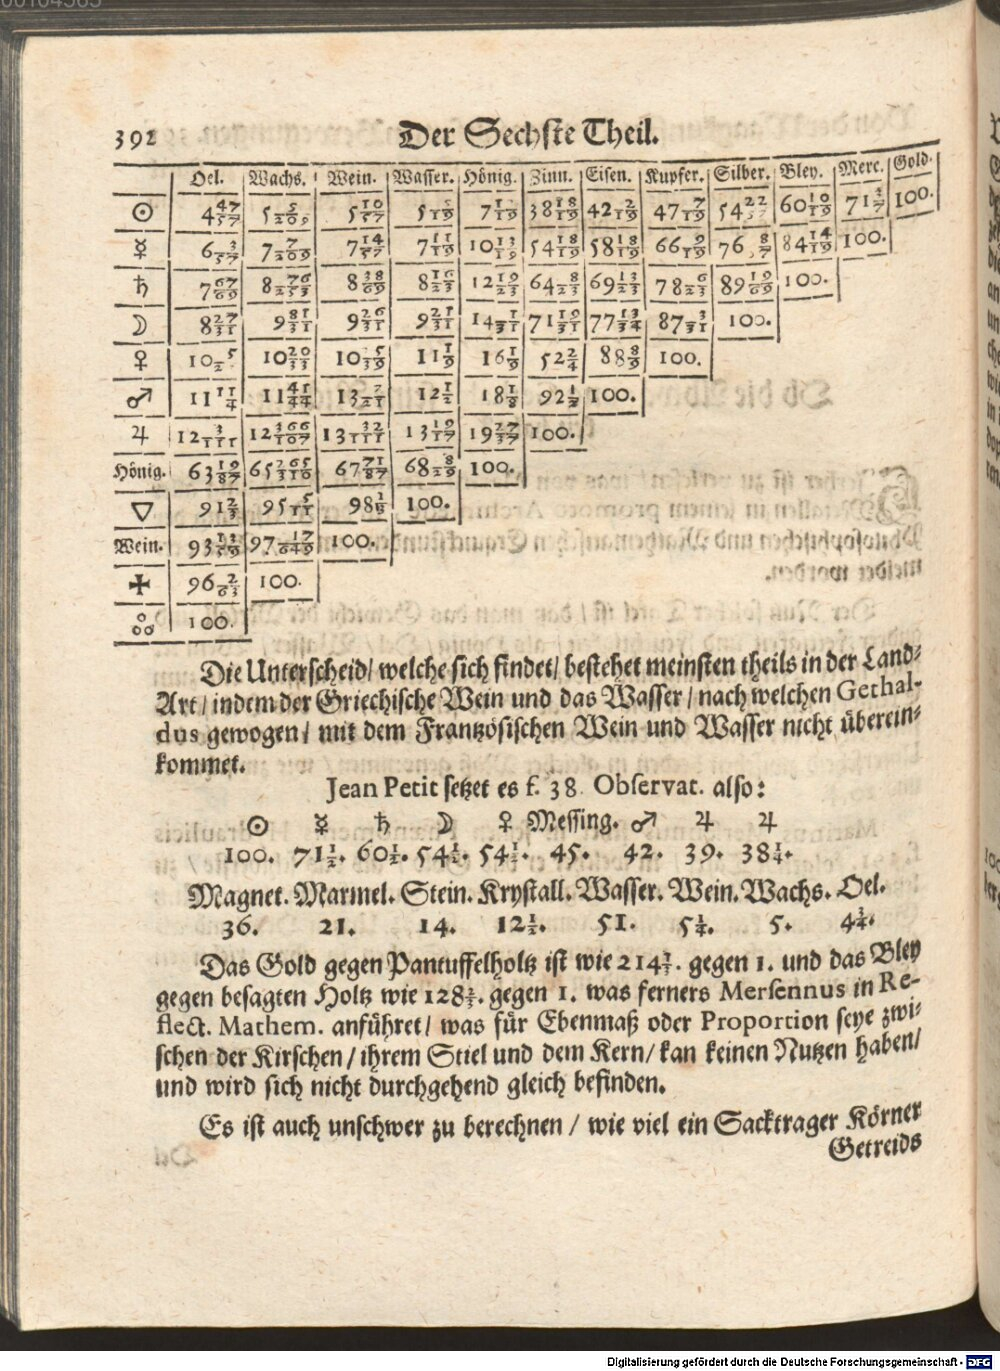 392 Der Sechste Theil.
Oel. Wachs. Wein. Wasser. Hönig. Zinn. Eisen. Kupfer. Silber. Bley. Merc. Gold.
☉ 4 47/57 5 5/209 5 10/57 5 5/19 7 12/19 38 18/19 42 2/19 47 7/19 60 10/19 100.
☿ 7 7/209 7 14/57 7 11/19 10 13/19 54 18/19 58 18/19 66 6/19 84 14/19 100.
♄ 7 67/69 8 76/253 8 38/69 8 16/23 12 10/23 64 8/23 69 13/23 78 6/23 100.
☽ 8 27/31 9 26/31 100.
♀ 11 1/9 16 1/9 88 8/9 100.
♂ 12 1/2 18 1/8 92 1/2 100.
♃ 100.
Hönig. 63 19/87 67 71/87 68 28/29 100.
▽ 91 2/3 95 5/11 100.
Wein. 100.
✠ 100.
100.
Die Unterscheid/ welche sich findet/ bestehet meinsten theils in der Land-
Art/ indem der Griechische Wein und das Wasser/ nach welchen Gethal-
dus gewogen/ mit dem Frantzösischen Wein und Wasser nicht überein-
kommet.
Jean Petit setzet es f. 38. Observat. also:
☉ ☿ ♄ ☽ ♀ Messing. ♂ ♃ ♃
100. 71 1/2. 60 1/2. 54 1/2. 54 1/2. 45. 42. 39. 38 1/4.
Magnet. Marmel. Stein. Krystall. Wasser. Wein. Wachs. Oel.
36. 21. 14. 12 1/2. 51. 5 1/4. 5. 4 3/4.
Das Gold gegen Pantuffelholtz ist wie 214 2/7. gegen 1. und das Bley
gegen besagten Holtz wie 128 2/7. gegen 1. was ferners Mersennus in Re-
flect. Mathem. anführet/ was für Ebenmaß oder Proportion seye zwi-
schen der Kirschen/ ihrem Stiel und dem Kern/ kan keinen Nutzen haben/
und wird sich nicht durchgehend gleich befinden.
Es ist auch unschwer zu berechnen/ wie viel ein Sacktrager Körner
Getreids
Digitalisierung gefördert durch die Deutsche Forschungsgemeinschaft - DFG